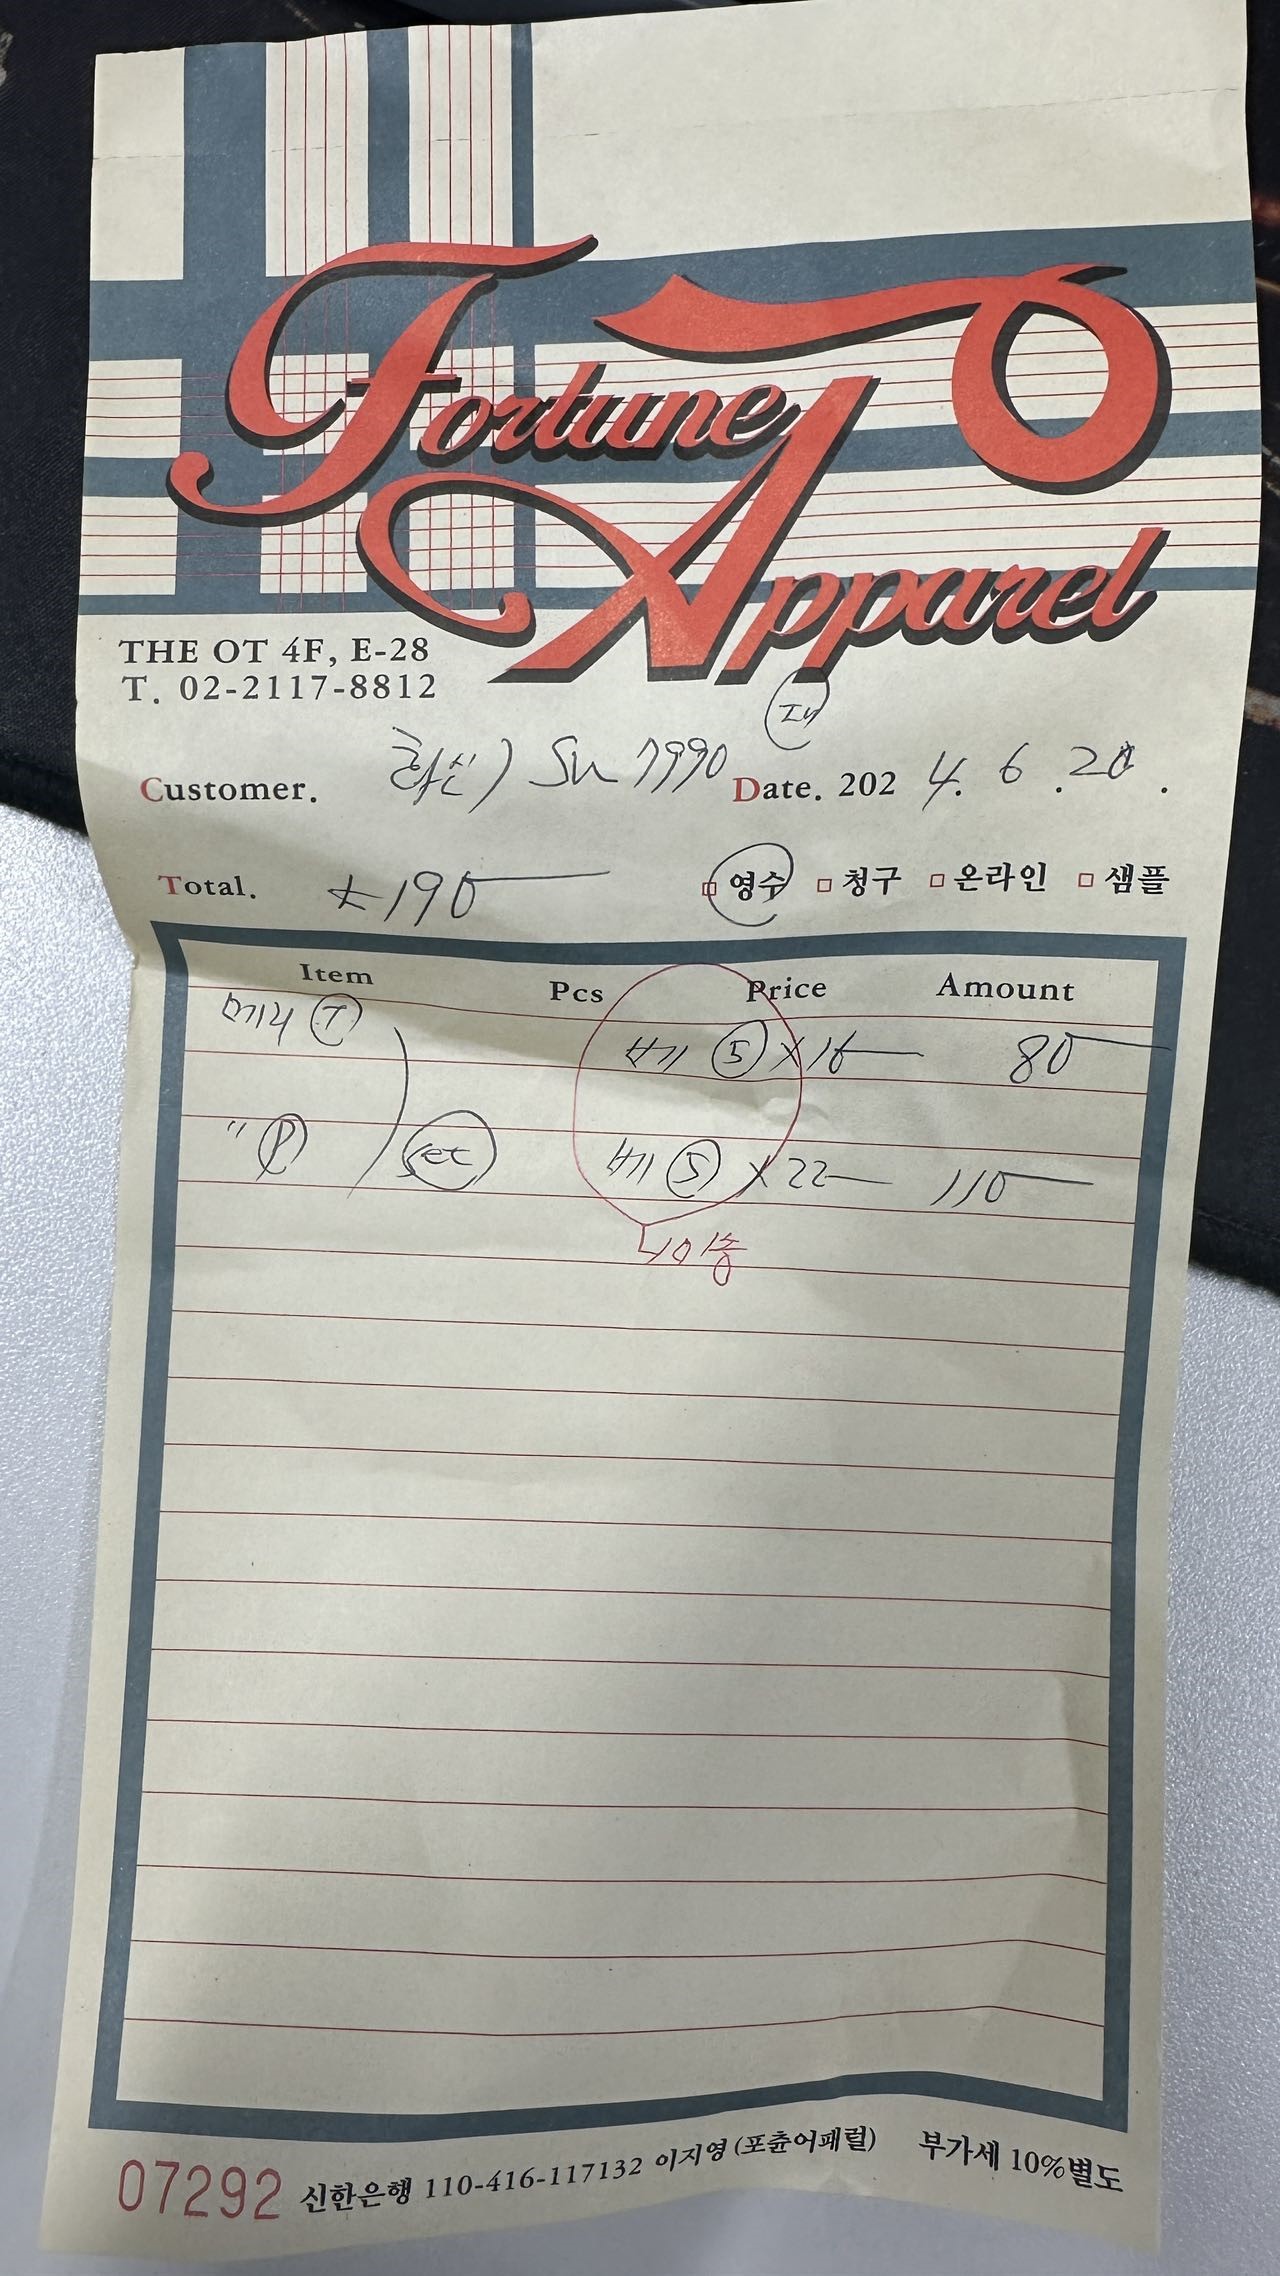 Fortune
Apparel
THE OT 4F, E-28
T. 02-2117-8812
Customer. Su 7990
Date. 2024. 6. 20.
Total. 190
영수 청구 온라인 샘플
Item Pcs Price Amount
T 베 5 x 16 80
" P set 베 5 x 22 110
미송
07292 신한은행 110-416-117132 이지영 (포츈어패럴) 부가세 10%별도